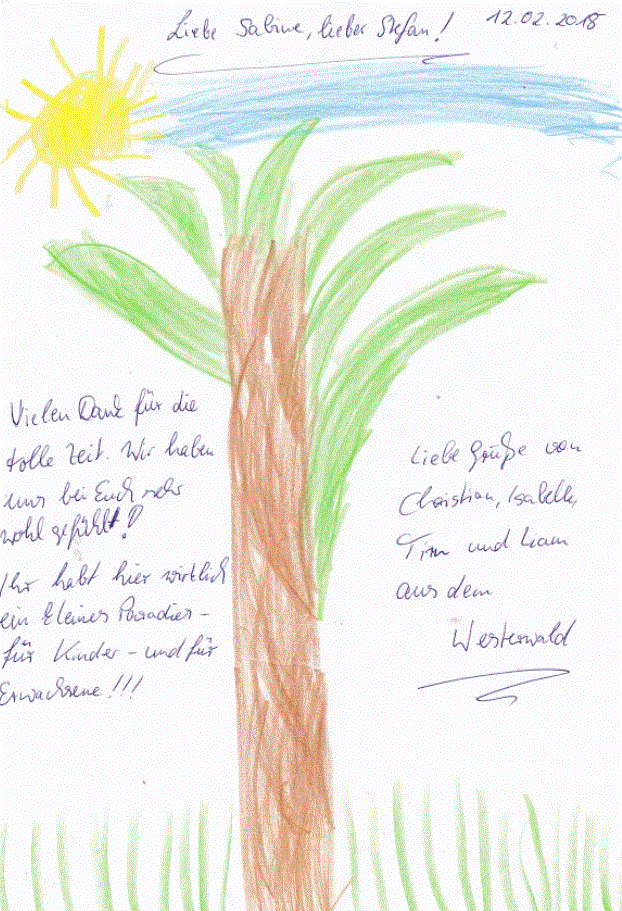 Liebe Sabine, lieber Stefan! 12.02.2018
Vielen Dank für die
tolle Zeit. Wir haben
uns bei Euch sehr
wohl gefühlt!
Ihr habt hier wirklich
ein kleines Paradies -
für Kinder - und für
Erwachsene!!!
Liebe Grüße von
Christian, Isabelle,
Tim und Liam
aus dem
Westerwald